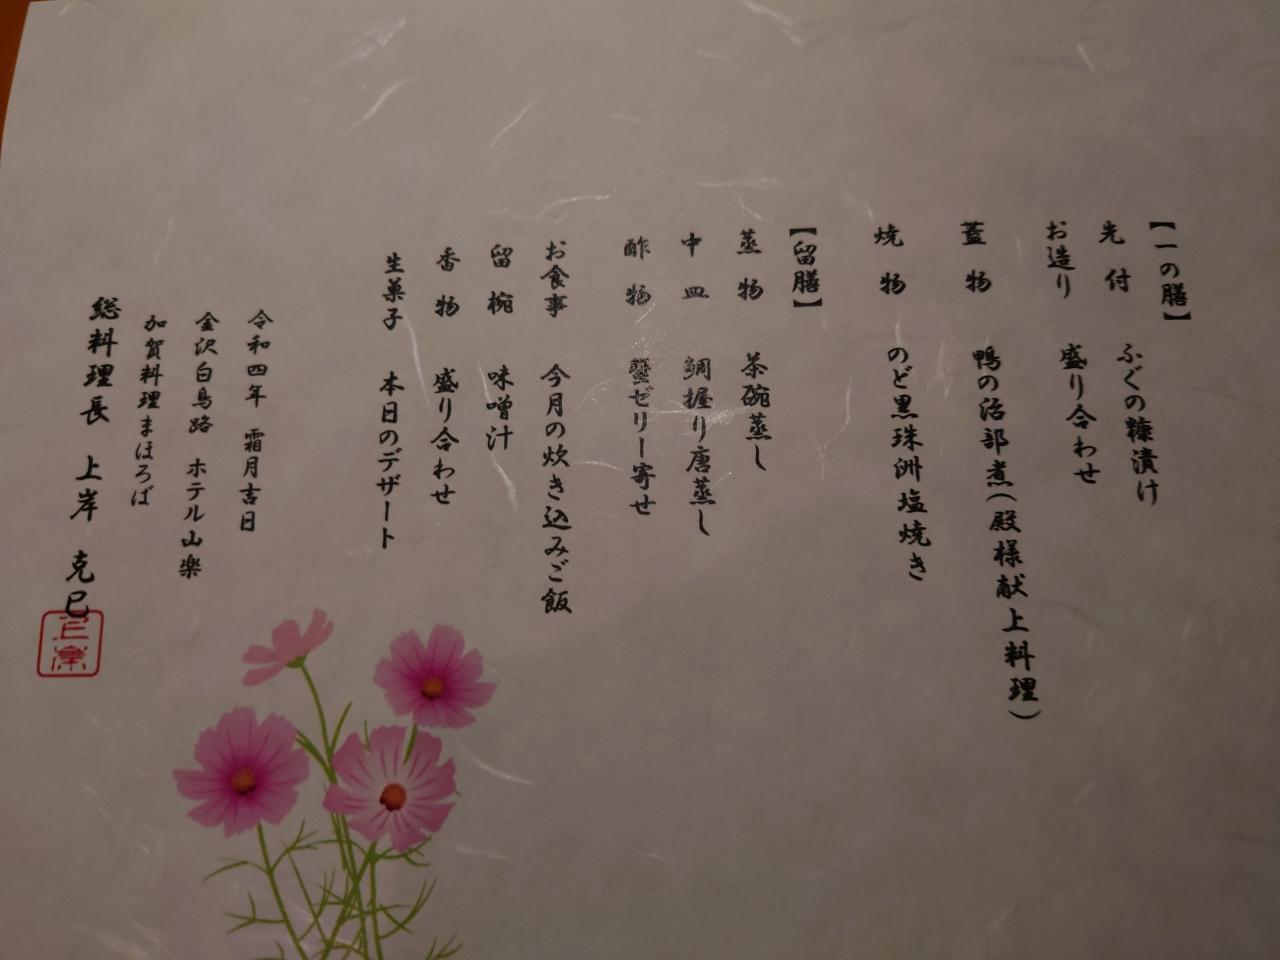 【一の膳】
先付 ふぐの糠漬け
お造り 盛り合わせ
蓋物 鴨の治部煮(殿様献上料理)
焼物 のど黒珠洲塩焼き
【留膳】
蒸物 茶碗蒸し
中皿 鯛握り唐蒸し
酢物 蟹ゼリー寄せ
お食事 今月の炊き込みご飯
留椀 味噌汁
香物 盛り合わせ
生菓子 本日のデザート
令和四年 霜月吉日
金沢白鳥路 ホテル山楽
加賀料理まほろば
総料理長 上岸 克巳